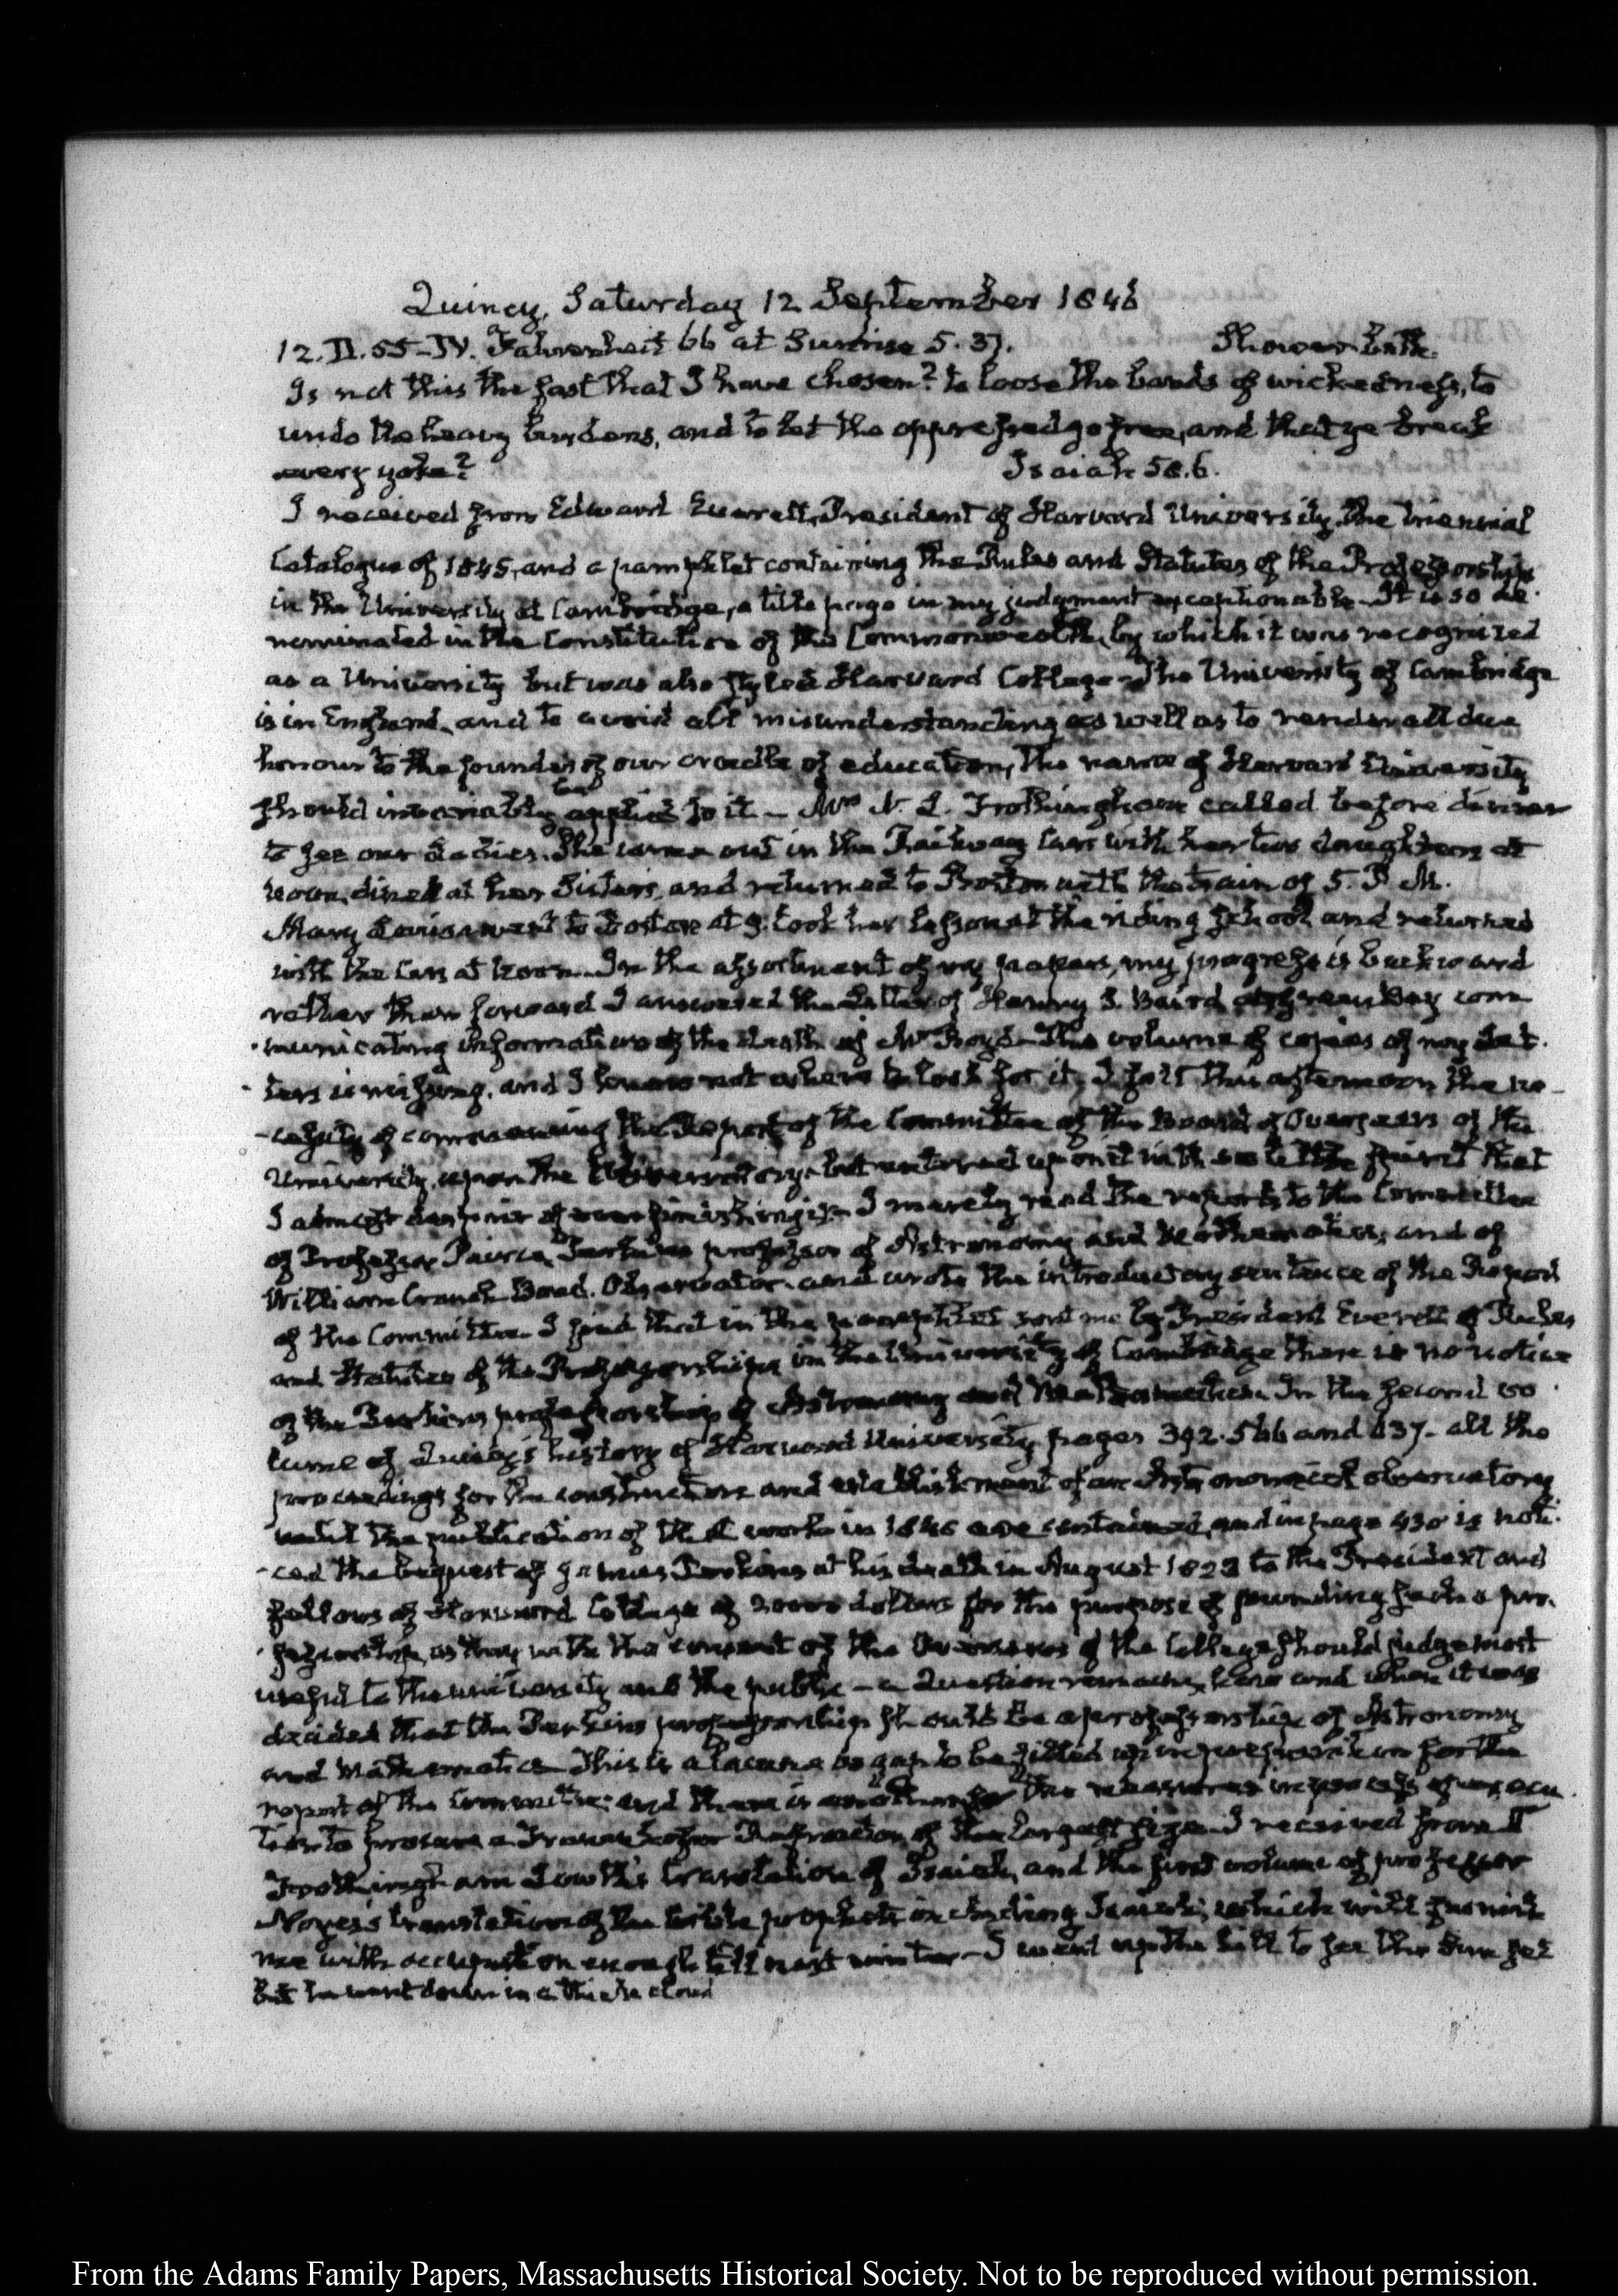 Quincy, Saturday 12 September 1846
12. II. 55- IV. Fahrenheit 66 at Sunrise 5. 37. Shower bath.
Is not this the fast that I have chosen? to loose the bands of wickedness, to
undo the heavy burdens, and to let the oppressed go free, and that ye break
every yoke? Isaiah 58.6.
I received from Edward Everett, President of Harvard University, the triennial
Catalogue of 1845, and a pamphlet containing the Rules and Statutes of the Professorships
in the University at Cambridge, a title page in my judgment exceptionable. It is so de-
nominated in the Constitution of the Commonwealth, by which it was recognized
as a University but was also styled Harvard College. The University of Cambridge
is in England, and to avoid all misunderstanding as well as to render all due
honour to the founder of our cradle of education, the name of Harvard University
should invariably be applied to it - Mrs N. L. Frothingham called before dinner
to see our Ladies. She came out in the Railway Cars with her two daughters at
noon, dined at her Sister's, and returned to Boston with the train of 5. P. M.
Mary Louisa went to Boston at 9. took her lesson at the riding school and returned
with the Cars at noon. In the assortment of my papers, my progress is backward
rather than forward I answered the Letter of Henry S. Baird at Green Bay com-
-municating information of the death of Mr Boyd. The volume of copies of my Let-
-ters is missing, and I know not where to look for it. I felt this afternoon the ne-
-cessity of commencing the Report of the Committee of the Board of Overseers of the
University, upon the Observatory - but entered upon it with so little spirit that
I almost despair of ever finishing it - I merely read the reports to the Committee
of Professor Peirce, Perkins professor of Astronomy and Mathematics, and of
William Cranch Bond. Observator. and wrote the introductory sentence of the Report
of the Committee. I find that in the pamphlet sent me by President Everett of Rules
and Statutes of the Professorships in the University of Cambridge there is no notice
of the Perkins professorship of Astronomy and Mathematics. In the second vo-
lume of Quincy's history of Harvard University, pages 392. 566 and 437 - all the
proceedings for the construction and establishment of an Astronomical observatory
until the publication of that work in 1840 are contained, and in page 430 is noti-
-ced the bequest of James Perkins at his death in August 1822 to the President and
fellows of Harvard College of 20000 dollars for the purpose of founding such a pro-
-fessorship, as they with the consent of the Overseers of the College should judge most
useful to the university and the public - a Question remains, how and when it was
decided that the Perkins professorship should be a professorship of Astronomy
and Mathematics - This is a lacuna or gap to be filled up in preparation for the
report of the Committee: and there is another for the measures in process of execu-
tion to procure a Fraunhofer Refractor of the largest size. I received from Dr
Frothingham Lowth's translation of Isaiah, and the first volume of professor
Noyes's translation of the Bible prophets including Isaiah; which will furnish
me with occupation enough till next winter - I went up the hill to see the Sun set
but he went down in a thick cloud
From the Adams Family Papers, Massachusetts Historical Society. Not to be reproduced without permission.